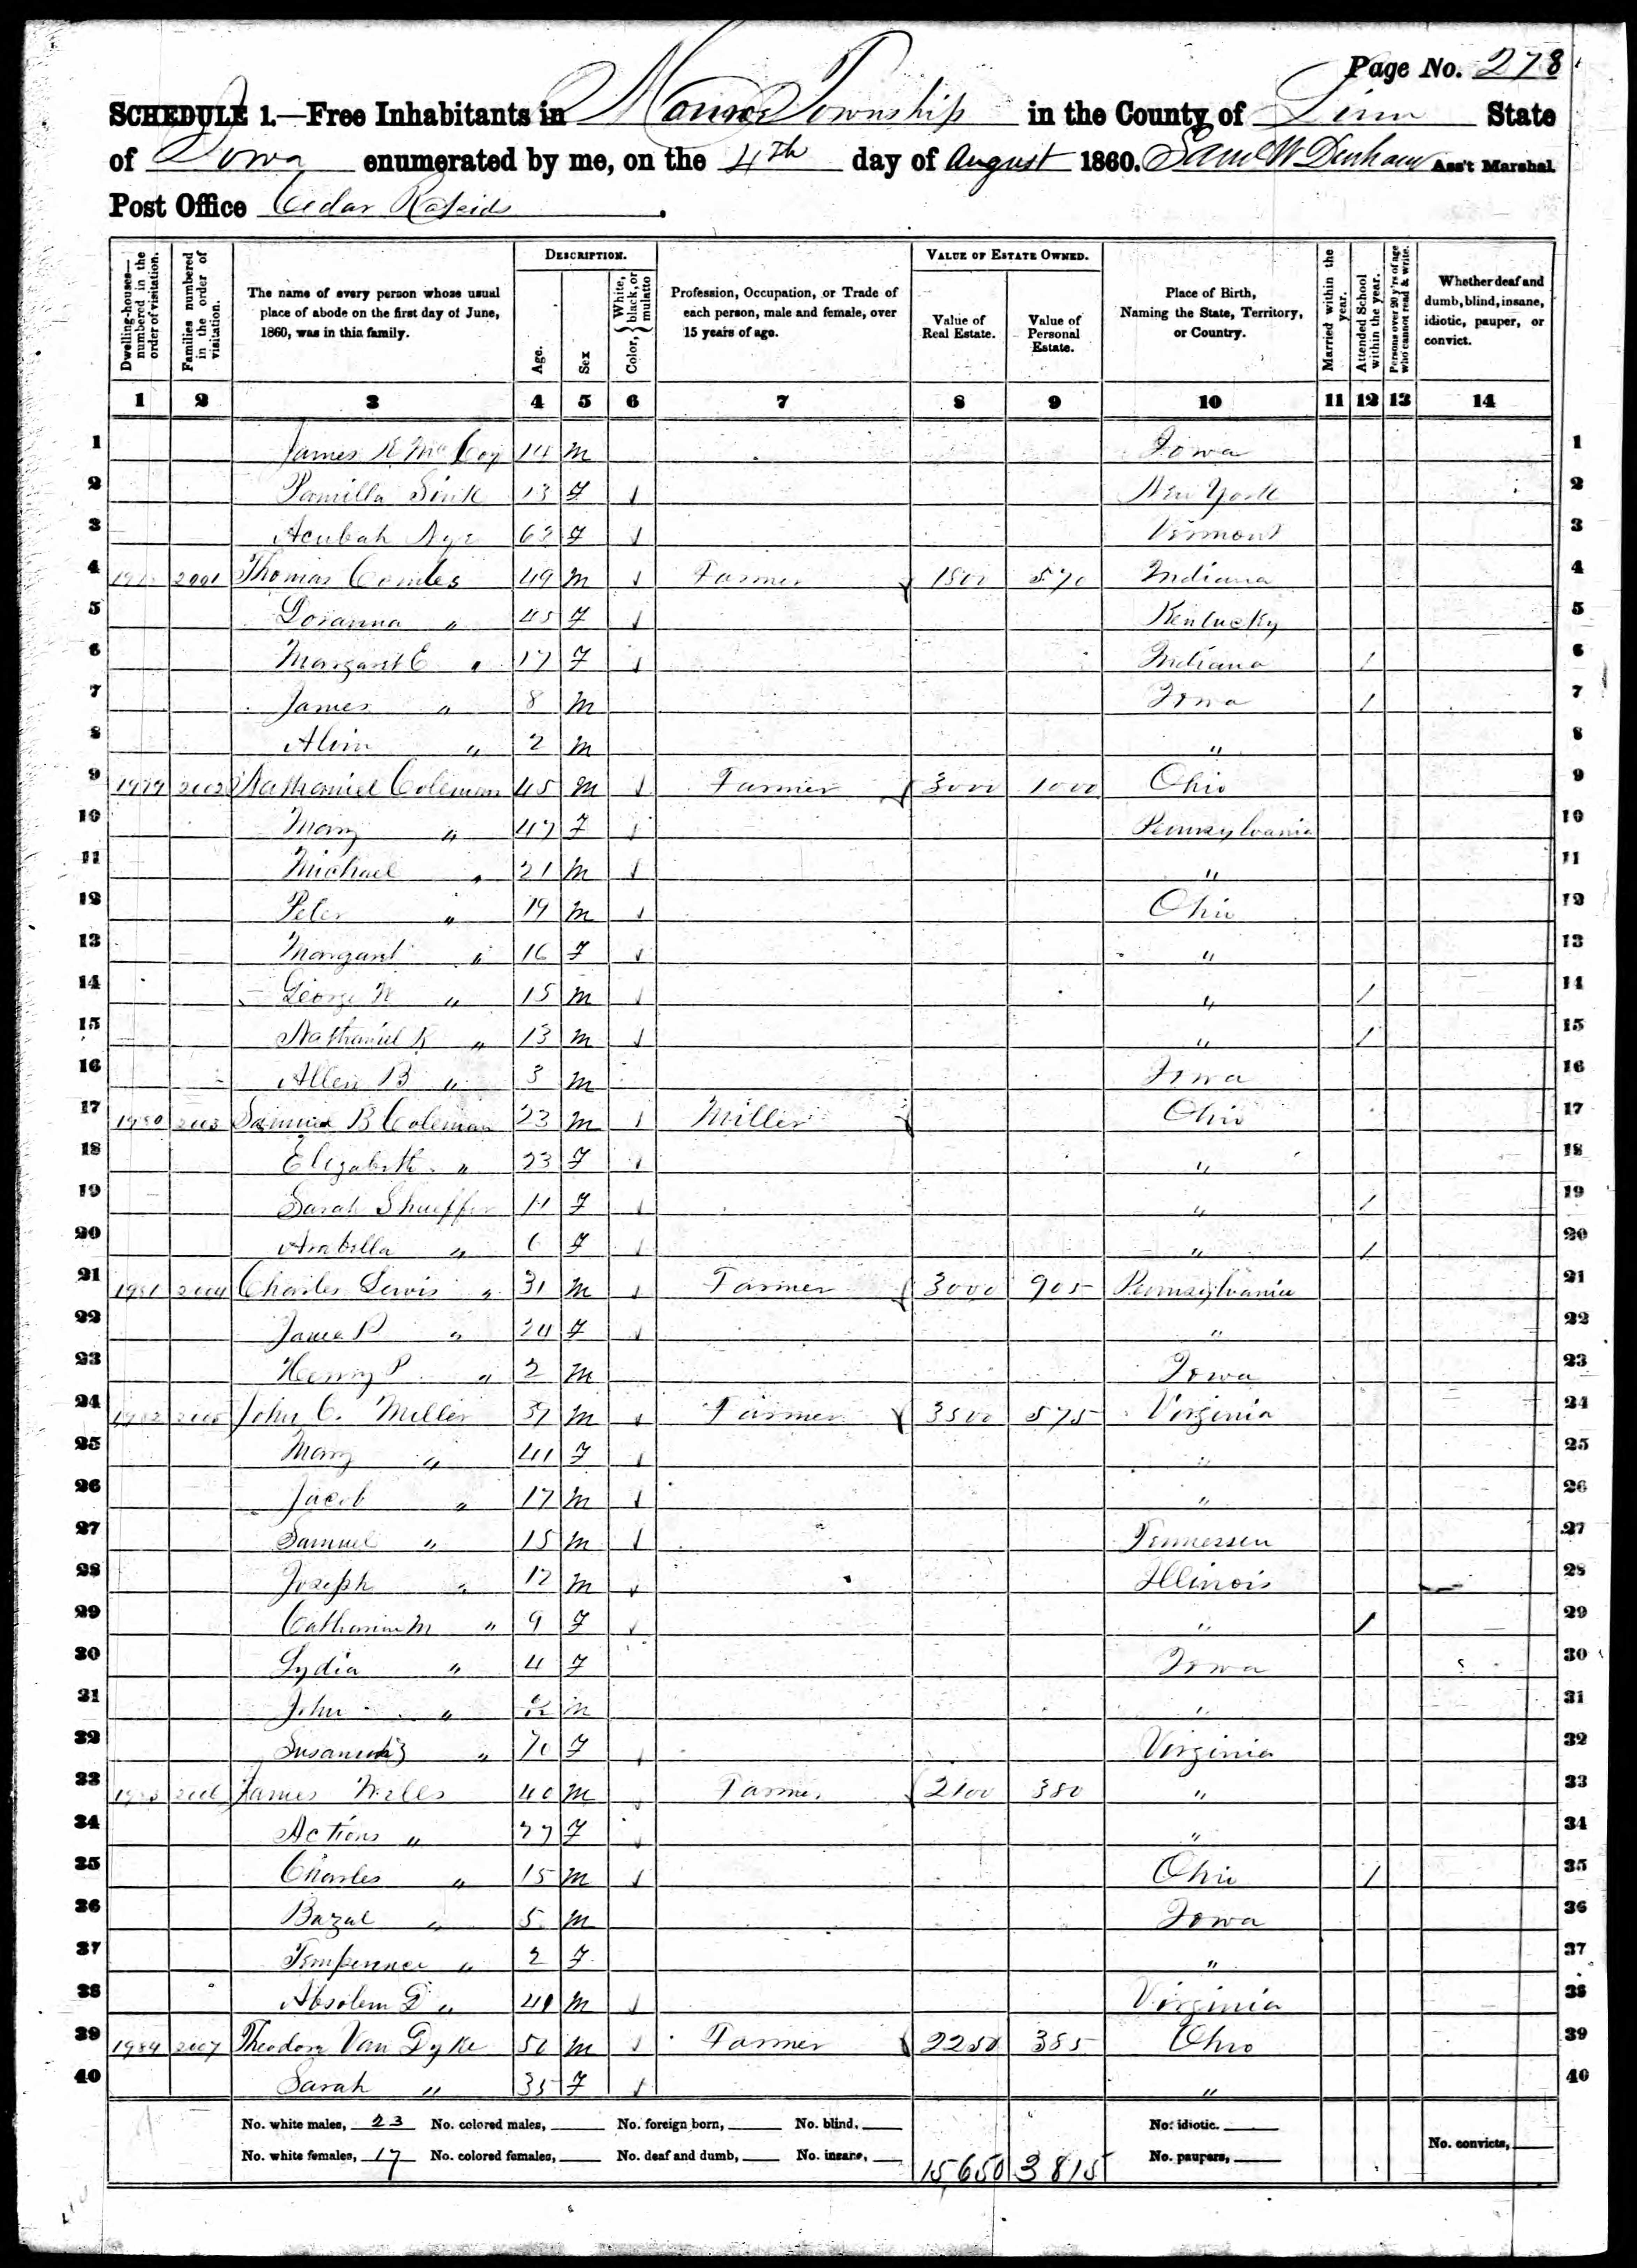 Page No. 278
SCHEDULE 1.—Free Inhabitants in Monroe Township in the County of Linn State
of Iowa enumerated by me, on the 4th day of August 1860. Saml W Durham Ass't Marshal
Post Office Cedar Rapids.
Dwelling-houses—numbered in the order of visitation. Families numbered in the order of visitation. The name of every person whose usual place of abode on the first day of June, 1860, was in this family. DESCRIPTION. Age. Sex Color, {White, black, or mulatto Profession, Occupation, or Trade of each person, male and female, over 15 years of age. VALUE OF ESTATE OWNED. Value of Real Estate. Value of Personal Estate. Place of Birth, Naming the State, Territory, or Country. Married within the year. Attended School within the year. Persons over 20 y'rs of age who cannot read & write. Whether deaf and dumb, blind, insane, idiotic, pauper, or convict.
1 2 3 4 5 6 7 8 9 10 11 12 13 14
1 James McCoy 14 M Iowa 1
2 Pamilla Sink 13 F New York 2
3 Nye F Vermont 3
4 2001 Thomas Combes 49 M Farmer 570 Indiana 4
5 Loranna " 45 F Kentucky 5
6 Margaret E " 17 F Indiana / 6
7 James " 8 M Iowa / 7
8 Alvin " 2 M " 8
9 1979 2002 Nathaniel Coleman 45 M Farmer 3000 1000 Ohio 9
10 Mary " 47 F Pennsylvania 10
11 Michael " 21 M " 11
12 Peter " 19 M Ohio 12
13 Margaret " 16 F " 13
14 George W " 15 M " / 14
15 Nathaniel K " 13 M " / 15
16 Allen B " 3 M Iowa 16
17 1980 2003 Samuel B Coleman 23 M Miller Ohio 17
18 Elizabeth " 23 F " 18
19 Sarah Shaeffer 11 F " / 19
20 Arabella " 6 F " / 20
21 1981 2004 Charles Lewis " 31 M Farmer 3000 905 Pennsylvania 21
22 Jane P " 24 F " 22
23 Henry P " 2 M Iowa 23
24 1982 2005 John C. Miller 37 M Farmer 3500 575 Virginia 24
25 Mary " 41 F " 25
26 Jacob " 17 M " 26
27 Samuel " 15 M Tennessee 27
28 Joseph " 12 M Illinois 28
29 Catharine M " 9 F " / 29
30 Lydia " 4 F Iowa 30
31 John " M " 31
32 " 70 F Virginia 32
33 1983 2006 James Wells 40 M Farmer 2100 380 " 33
34 " F " 34
35 Charles " 15 M Ohio / 35
36 Bazal " 5 M Iowa 36
37 " 2 F " 37
38 Absolem D " 41 M Virginia 38
39 1984 2007 Theodore Van Dyke 50 M Farmer 2250 385 Ohio 39
40 Sarah " 35 F " 40
No. white males, 23 No. colored males, No. foreign born, No. blind, No. idiotic.
No. white females, 17 No. colored females, No. deaf and dumb, No. insane, 15650 3815 No. paupers, No. convicts,